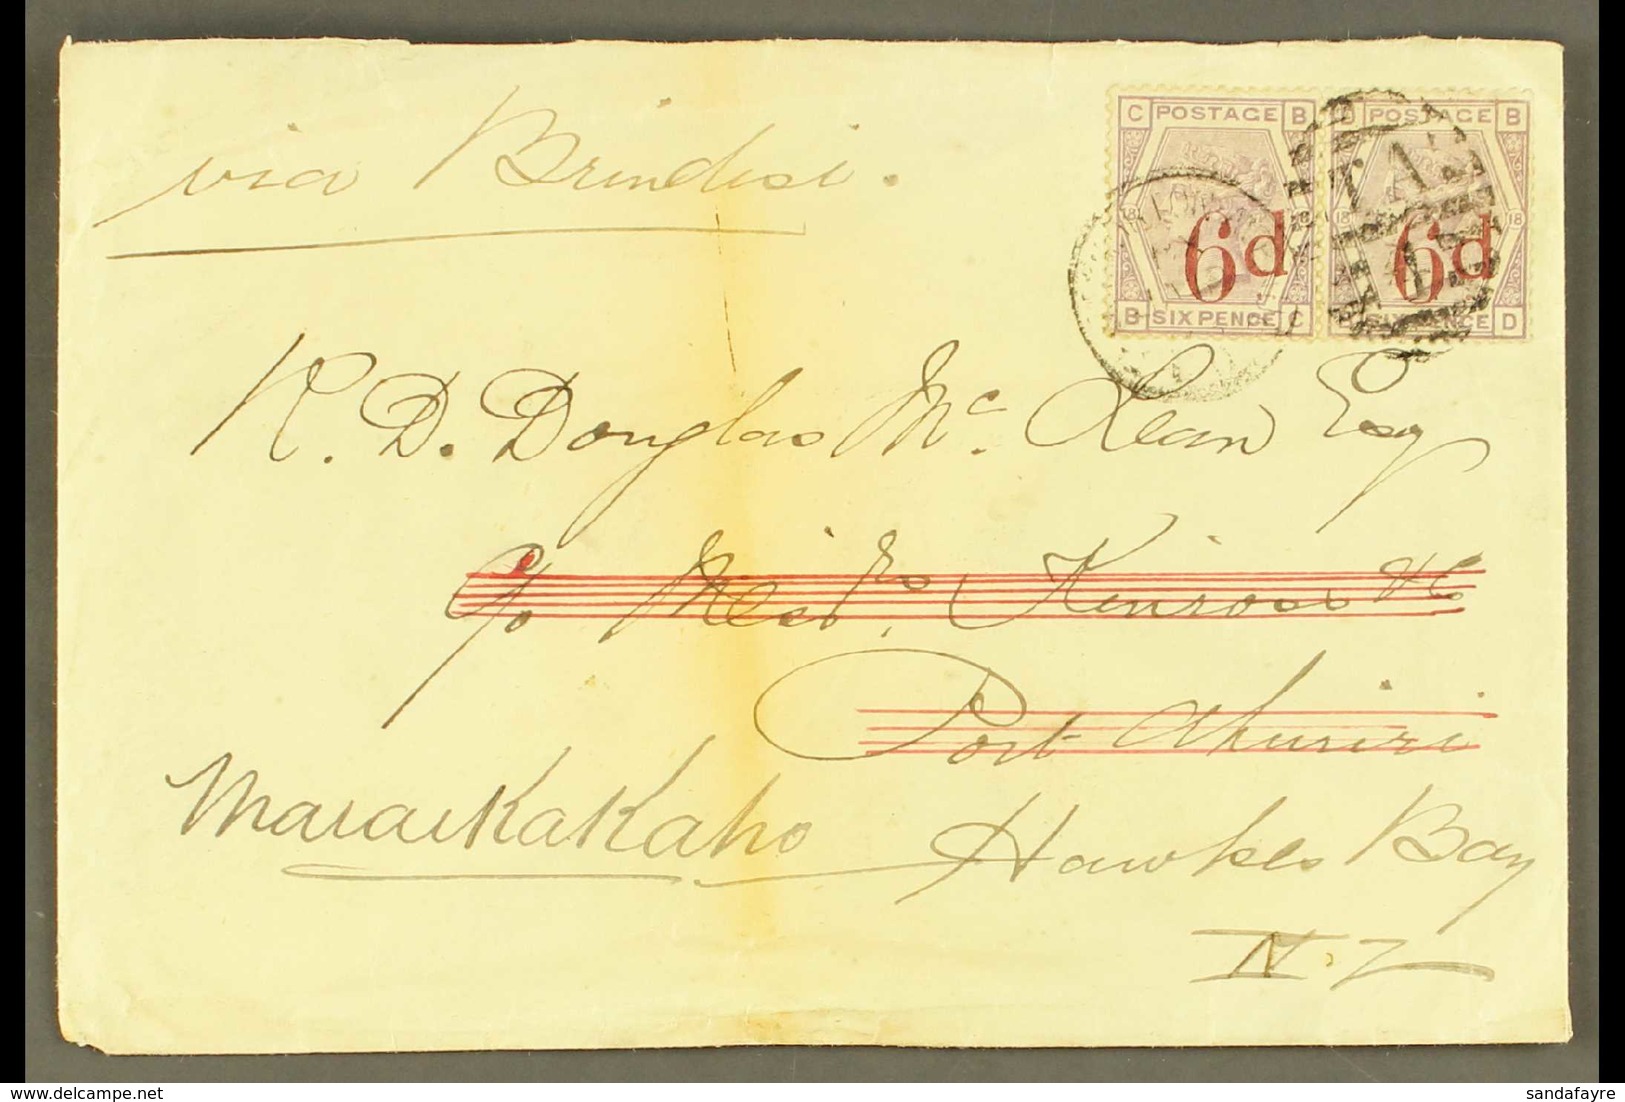 via Brindisi.
C POSTAGE B
D POSTAGE B
18 18
18 18
6d
6d
B SIX PENCE C
SIX PENCE D
R. D. Douglas McLean Esq
c/o Messrs. Kinross & Co
Port Ahuriri
Maraekakaho Hawkes Bay
N.Z
sandafayre